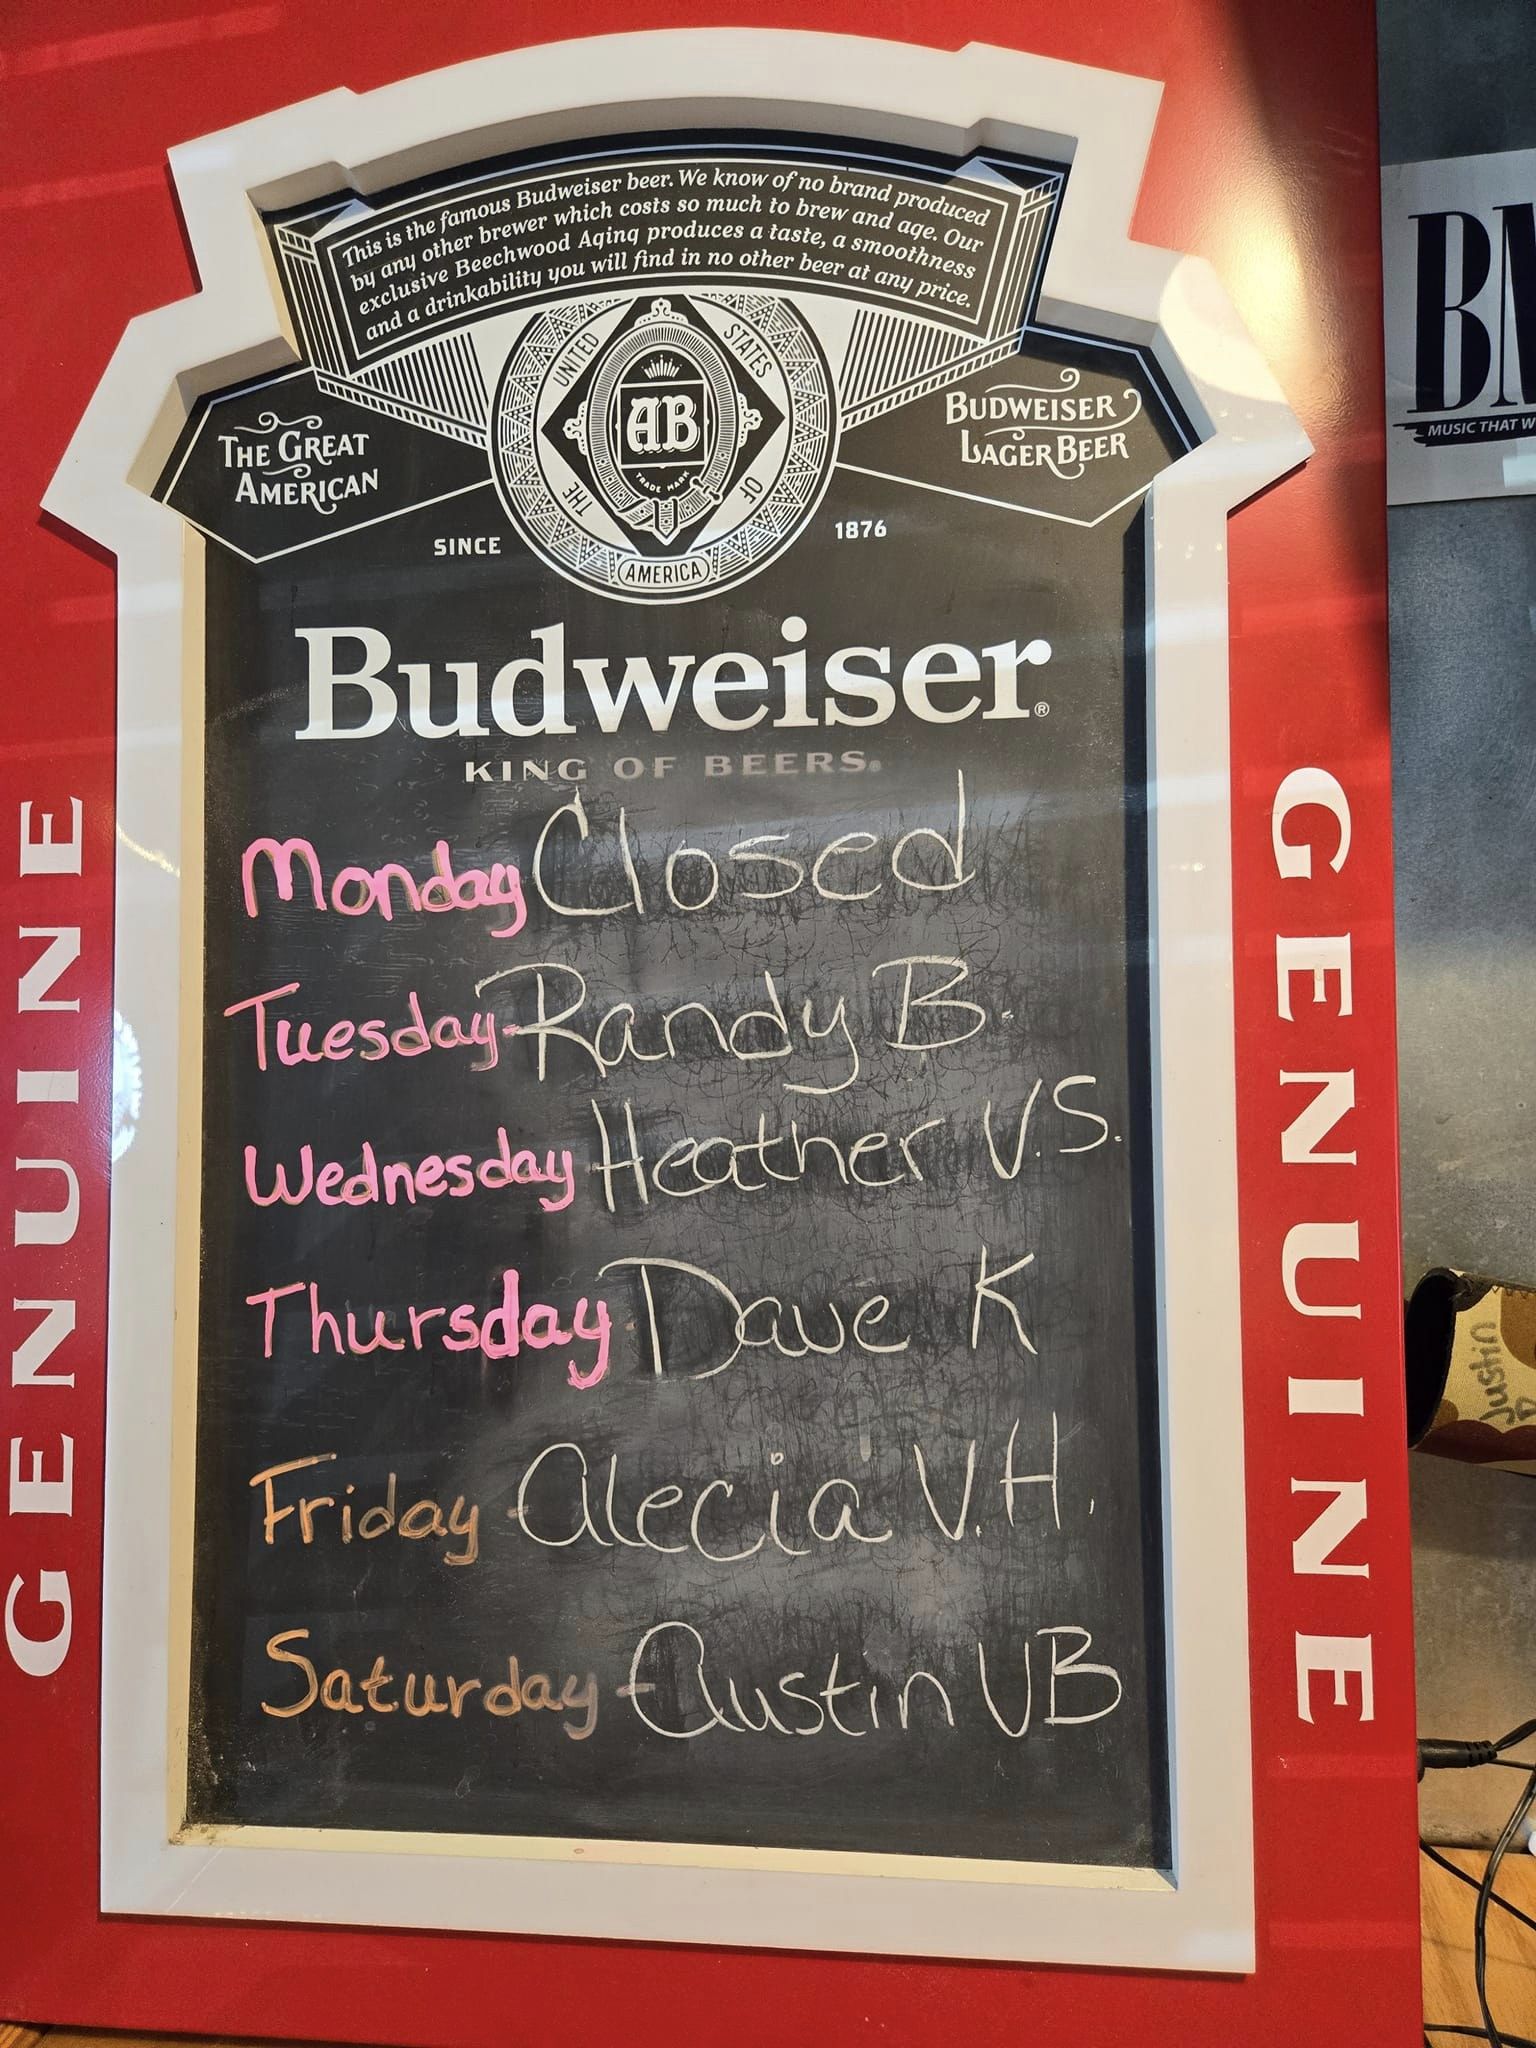 This is the famous Budweiser beer. We know of no brand produced
by any other brewer which costs so much to brew and age. Our
exclusive Beechwood Aging produces a taste, a smoothness
and a drinkability you will find in no other beer at any price.
THE GREAT
AMERICAN
THE UNITED STATES OF
AMERICA
AB
TRADE MARK
BUDWEISER
LAGER BEER
SINCE 1876
Budweiser®
KING OF BEERS®
Monday Closed
Tuesday-Randy B.
Wednesday-Heather V.S.
Thursday-Dave K
Friday-Alecia V.H.
Saturday-Austin VB
GENUINE
GENUINE
MUSIC THAT
Justin